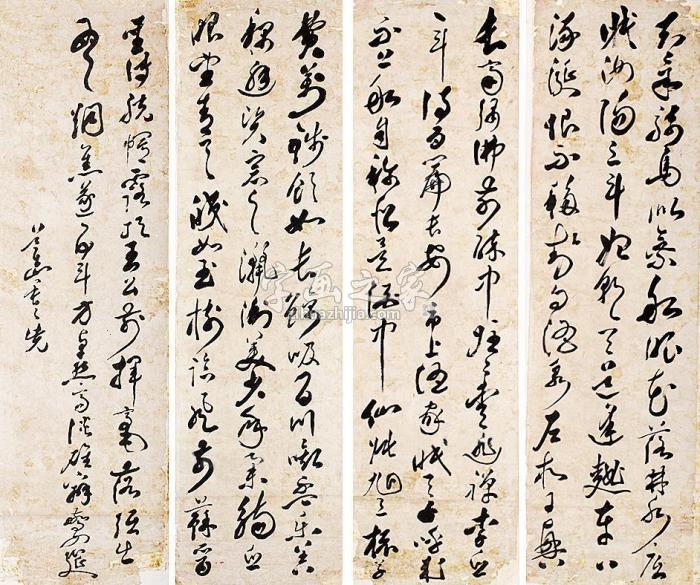 知章騎馬似乘船眼花落井水底
眠汝陽三斗始朝天道逢麴車口
流涎恨不移封向酒泉左相日興
長齋繡佛前醉中往往愛逃禪李白
一斗詩百篇長安市上酒家眠天子呼來
不上船自稱臣是酒中仙張旭三杯草
費萬錢飲如長鯨吸百川銜杯樂聖
稱避賢宗之瀟灑美少年舉觴白
眼望青天皎如玉樹臨風前蘇晉
聖傳脫帽露頂王公前揮毫落紙如
雲烟焦遂五斗方卓然高談雄辯驚筵
字画之家